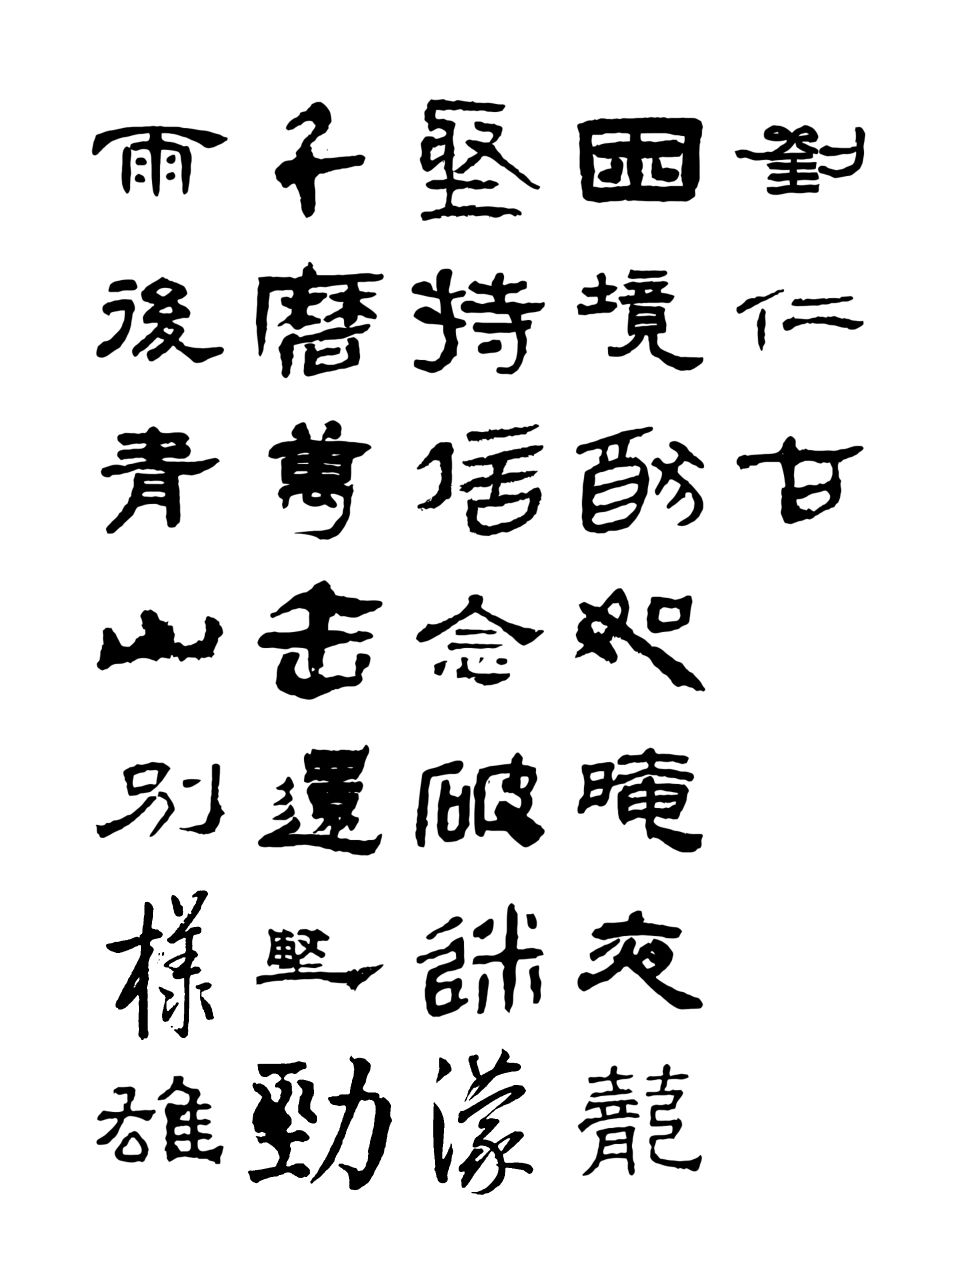 雨後青山別樣雄
千磨萬击還堅勁
堅持信念破詸濛
困境猶如晻夜龍
劉仁甘